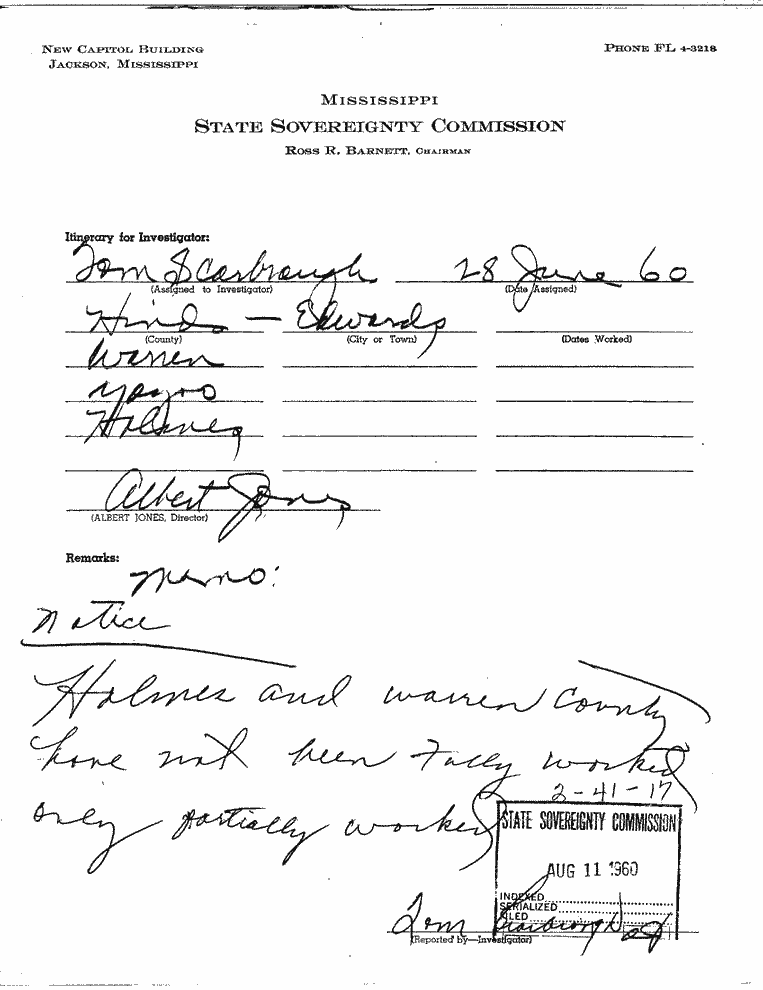 NEW CAPITOL BUILDING
JACKSON, MISSISSIPPI
PHONE FL 4-3218
MISSISSIPPI
STATE SOVEREIGNTY COMMISSION
ROSS R. BARNETT, CHAIRMAN
Itinerary for Investigator:
Tom Scarbrough 28 June 60
(Assigned to Investigator) (Date Assigned)
Hinds — Edwards
(County) (City or Town) (Dates Worked)
Warren
Yazoo
Holmes
Albert Jones
(ALBERT JONES, Director)
Remarks:
Memo:
Notice
Holmes and Warren County
have not been fully worked
only partially worked
2-41-17
STATE SOVEREIGNTY COMMISSION
AUG 11 1960
INDEXED
SERIALIZED
FILED
Tom Scarbrough
(Reported by—Investigator)